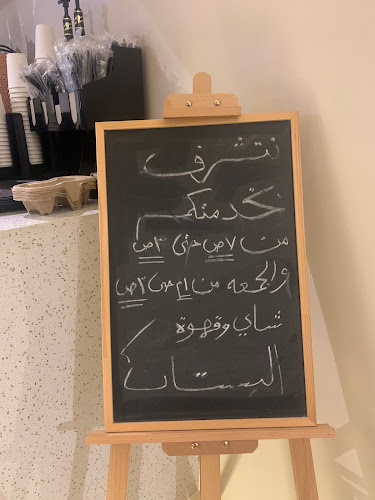 نتشرف
بخدمتكم
من ٧ص حتى ٣ص
والجمعه من ١م حتى ٣ص
شاي وقهوة
البستان